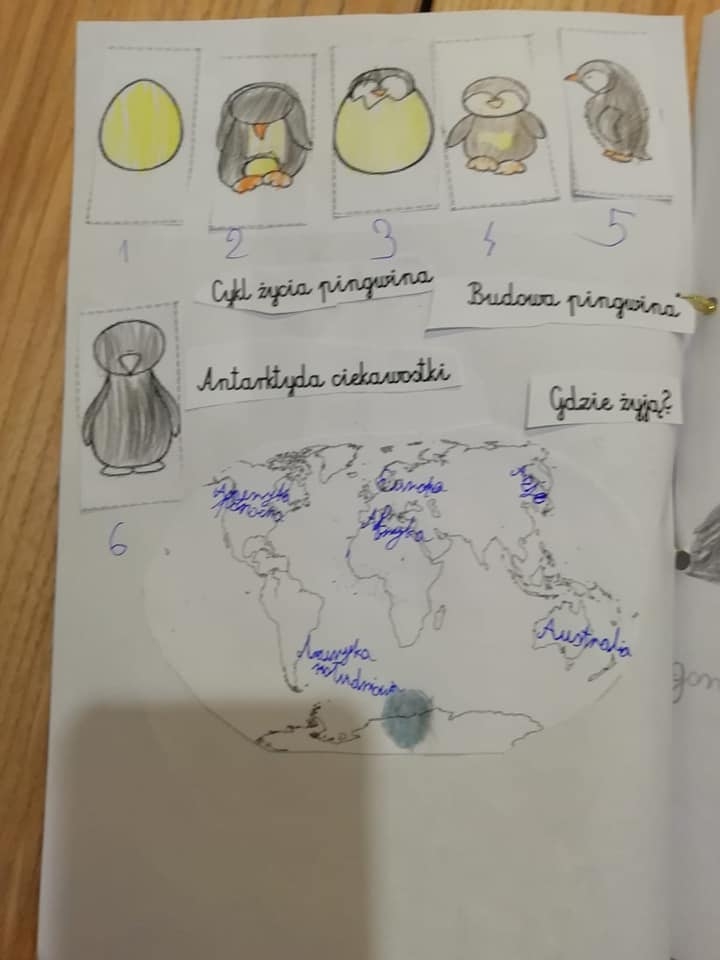 1 2 3 4 5
Cykl życia pingwina
Budowa pingwina
Antarktyda ciekawostki
Gdzie żyją?
6
Ameryka
Północna
Europa
Azja
Afryka
Australia
Ameryka
południowa